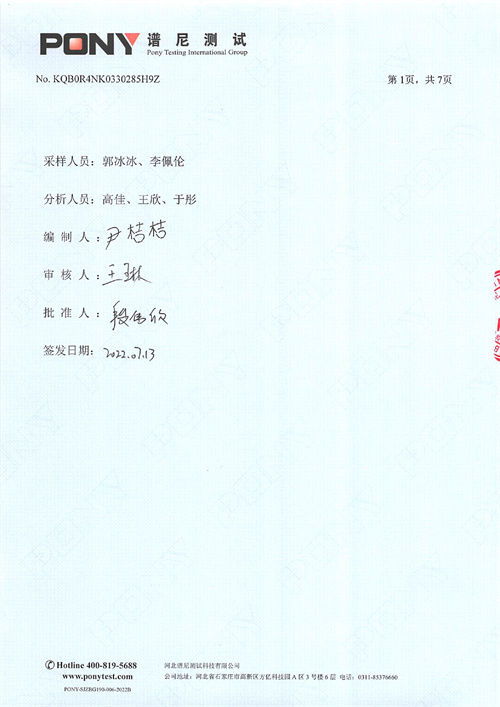 PONY 谱尼测试
Pony Testing International Group
No. KQB0R4NK0330285H9Z 第1页，共7页
采样人员：郭冰冰、李佩伦
分析人员：高佳、王欣、于彤
编制人：尹桔桔
审核人：王琳
批准人：
签发日期：2022.07.13
Hotline 400-819-5688 河北谱尼测试科技有限公司
www.ponytest.com 公司地址：河北省石家庄市高新区方亿科技园A区3号楼6层 电话：0311-85376660
PONY-SJZBG190-006-2022B